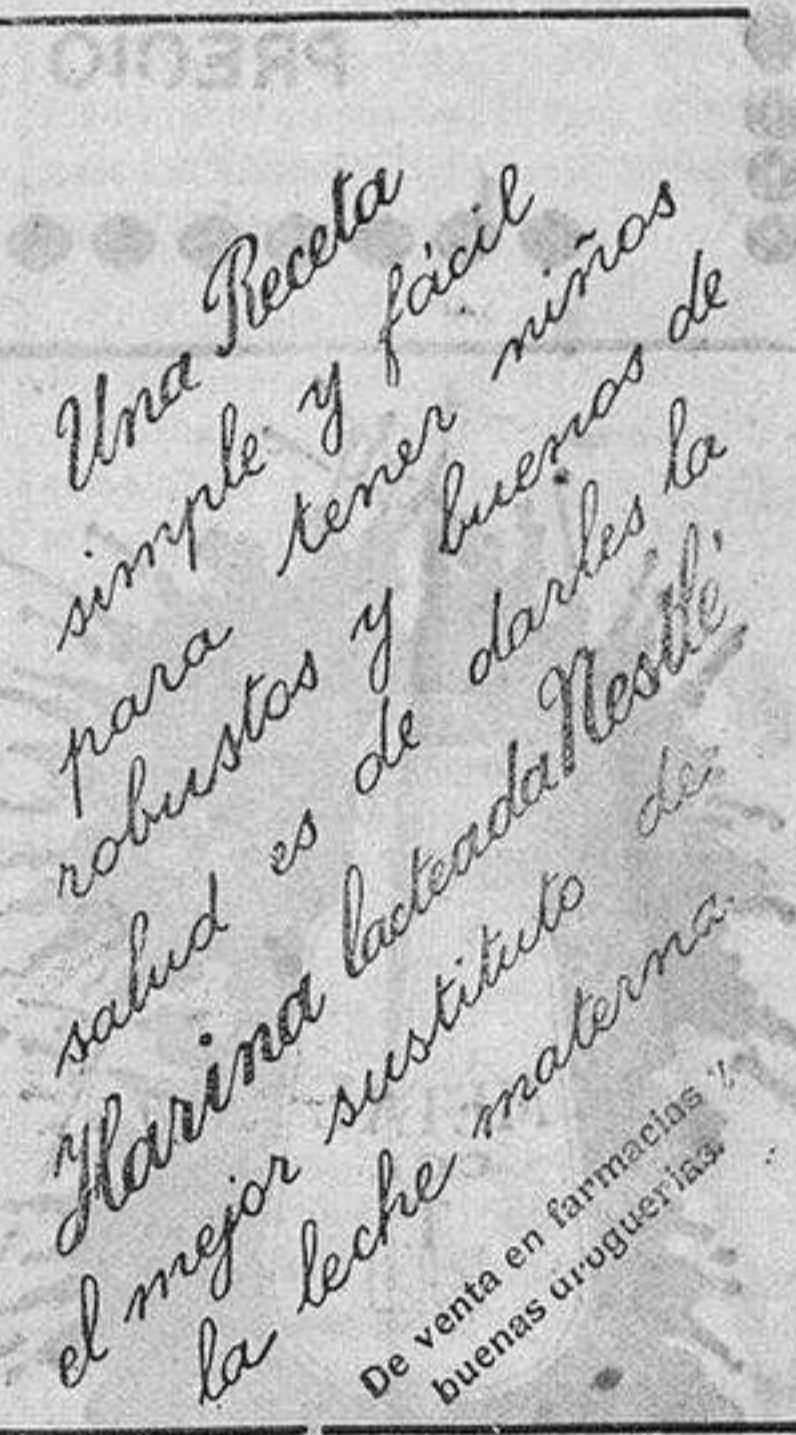 PRECIO
Una Receta
simple y fácil
para tener niños
robustos y buenos de
salud es de darles la
Harina lacteada Nestlé
el mejor sustituto de
la leche materna.
De venta en farmacias y
buenas droguerías.